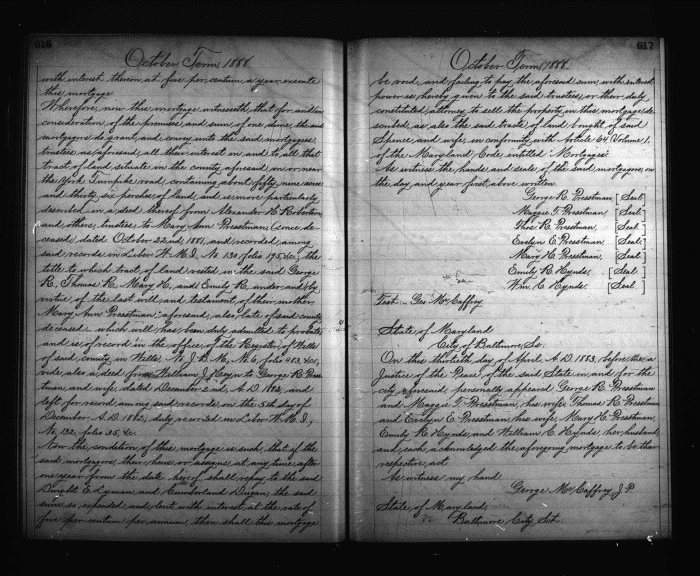 616
October Term 1888.
with interest thereon at five per centum a year execute
this mortgage
Wherefore, now this mortgage witnesseth, that for and in
consideration of the premises and sum of one dime, the said
mortgagors do grant, and convey unto the said mortgagees
trustee as aforesaid, all their interest in and to all that
tract of land situate in the county aforesaid, on or near
the York Turnpike road, containing about fifty nine acres
and thirty six perches of land, and is more particularly
described in a deed thereof from Alexander H. Robertson
and others, trustees to Mary Ann Presstman, (since de-
ceased) dated October 22nd, 1881, and recorded among
said records in Liber W. M. I., No. 130 folio 195 &c; the
title to which tract of land vested in the said George
R., Thomas R., Mary H., and Emily R. under and by
virtue of the last will and testament of their mother,
Mary Ann Presstman aforesaid, also late of said county
deceased which will has been duly admitted to probate
and is of record in the office of the Register of Wills
of said county in Wills No. J. B. M., No. 6, folio 483, &c,
vide, also a deed from William J. to George R. Presst
man and wife, dated December 2nd, A.D. 1882, and
left for record among said records on the 5th day of
December A.D. 1882, duly recorded in Liber W. M. I.,
No. 132 folio 35, &c.
Now the condition of this mortgage is such, that if the
said mortgagors, their heirs or assigns at any time after
one year from the date hereof shall repay to the said
E. Lyman and Cumberland Dugan, the said
sum so expended, and lent with interest at the rate of
five per centum per annum, then shall this mortgage
617
October Term, 1888.
be void, and failing to pay the aforesaid sum with interest
power is hereby given to the said trustees, or their duly
constituted attorney to sell the property, in this mortgage de-
scribed, as also the said tracts of land bought of said
Spence, and wife, in conformity with article 64 Volume 1.
of the Maryland, Code entitled "Mortgages".
As witness the hands and seals of the said mortgagors, on
the day and year first above written.
George R. Presstman [Seal]
Maggie T. Presstman [Seal.]
Thos. R. Presstman, [Seal.]
Evelyn E. Presstman [Seal.]
Mary H. Presstman, [Seal.]
Emily R. Hynds. [Seal.]
Wm. C. Hynds. [Seal.]
Test: Geo. McCaffrey
State of Maryland
City of Baltimore, Sc.
On this thirtieth day of April A.D. 1883, before me a
Justice of the Peace, of the said State in and for the
city aforesaid, personally appeared George R. Presstman
and Maggie T. Presstman, his wife, Thomas R. Presstman
and Evelyn E. Presstman, his wife, Mary H. Presstman,
Emily R. Hynds, and William C. Hynds, her husband,
and each acknowledged the aforegoing mortgage to be their
respective act
As witness my hand.
George McCaffrey J.P.
State of Maryland,
Baltimore City, Sct.